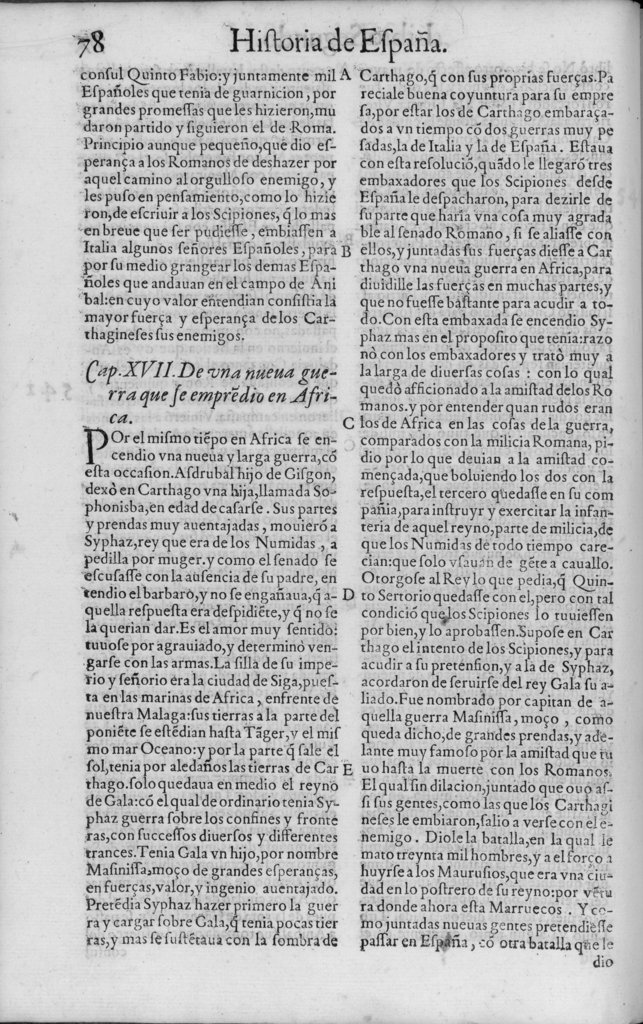 78 Historia de España.
consul Quinto Fabio:y juntamente mil
Españoles que tenia de guarnicion, por
grandes promessas que les hizieron, mu
daron partido y siguieron el de Roma.
Principio aunque pequeño, que dio es-
perança a los Romanos de deshazer por
aquel camino al orgulloso enemigo, y
les puso en pensamiento, como lo hizie
ron, de escriuir a los Scipiones, q̃ lo mas
en breue que ser pudiesse, embiassen a
Italia algunos señores Españoles, para
por su medio grangear los demas Espa-
ñoles que andauan en el campo de Ani
bal: en cuyo valor entendian consistia la
mayor fuerça y esperança de los Car-
thagineses sus enemigos.
Cap. XVII. De vna nueua gue-
rra que se emprẽdio en Afri-
ca.
POr el mismo tiẽpo en Africa se en-
cendio vna nueua y larga guerra, cõ
esta occasion. Asdrubal hijo de Gisgon,
dexò en Carthago vna hija, llamada So-
phonisba, en edad de casarse. Sus partes
y prendas muy auentajadas, mouierõ a
Syphaz, rey que era de los Numidas, a
pedilla por muger. y como el senado se
escusasse con la ausencia de su padre, en
tendio el barbarò, y no se engañaua, q̃ a-
quella respuesta era despidiẽte, y q̃ no se
la querian dar. Es el amor muy sentido:
tuuose por agrauiado, y determinò ven-
garse con las armas. La silla de su impe-
rio y señorio era la ciudad de Siga, pues-
ta en las marinas de Africa, enfrente de
nuestra Malaga: sus tierras a la parte del
poniẽte se estẽdian hasta Tãger, y el mis
mo mar Oceano: y por la parte q̃ sale el
sol, tenia por aledaños las tierras de Car
thago. solo quedaua en medio el reyno
de Gala: cõ el qual de ordinario tenia Sy-
phaz guerra sobre los confines y fronte
ras, con successos diuersos y differentes
trances. Tenia Gala vn hijo, por nombre
Masinissa, moço de grandes esperanças,
en fuerças, valor, y ingenio auentajado.
Pretẽdia Syphaz hazer primero la guer
ra y cargar sobre Gala, q̃ tenia pocas tier
ras, y mas se sustẽtaua con la sombra de
A
B
C
D
E
Carthago, q̃ con sus proprias fuerças. Pa
reciale buena coyuntura para su empre
sa, por estar los de Carthago embaraça-
dos a vn tiempo cõ dos guerras muy pe
sadas, la de Italia y la de España. Estaua
con esta resoluciõ, quãdo le llegarõ tres
embaxadores que los Scipiones desde
España le despacharon, para dezirle de
su parte que haria vna cosa muy agrada
ble al senado Romano, si se aliasse con
ellos, y juntadas sus fuerças diesse a Car
thago vna nueua guerra en Africa, para
diuidille las fuerças en muchas partes, y
que no fuesse bastante para acudir a to-
do. Con esta embaxada se encendio Sy-
phaz mas en el proposito que tenia: razo
nò con los embaxadores y tratò muy a
la larga de diuersas cosas: con lo qual
quedò afficionado a la amistad de los Ro
manos. y por entender quan rudos eran
los de Africa en las cosas de la guerra,
comparados con la milicia Romana, pi-
dio por lo que deuian a la amistad co-
mençada, que boluiendo los dos con la
respuesta, el tercero quedasse en su com
pañia, para instruyr y exercitar la infan-
teria de aquel reyno, parte de milicia, de
que los Numidas de todo tiempo care-
cian: que solo vsauan de gẽte a cauallo.
Otorgose al Rey lo que pedia, q̃ Quin-
to Sertorio quedasse con el, pero con tal
condiciõ que los Scipiones lo tuuiessen
por bien, y lo aprobassen. Supose en Car
thago el intento de los Scipiones, y para
acudir a su pretension, y a la de Syphaz,
acordaron de seruirse del rey Gala su a-
liado. Fue nombrado por capitan de a-
quella guerra Masinissa, moço, como
queda dicho, de grandes prendas, y ade-
lante muy famoso por la amistad que tu
uo hasta la muerte con los Romanos.
El qual sin dilacion, juntado que ouo as-
si sus gentes, como las que los Carthagi
neses le embiaron, salio a verse con el e-
nemigo. Diole la batalla, en la qual le
mato treynta mil hombres, y a el forço a
huyrse a los Maurusios, que era vna ciu-
dad en lo postrero de su reyno: por vẽtu
ra donde ahora esta Marruecos. Y co-
mo juntadas nueuas gentes pretendiesse
passar en España, cõ otra batalla que le
dio